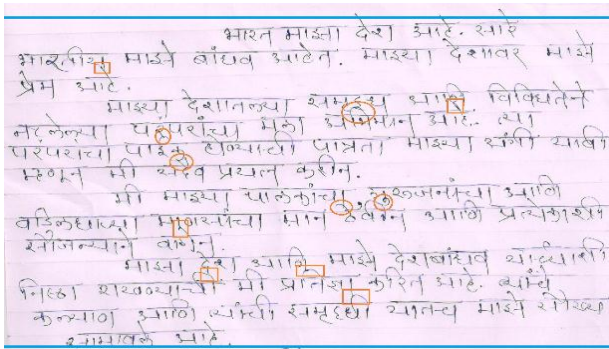 भारत माझा देश आहे. सारे
भारतीय माझे बांधव आहेत. माझ्या देशावर माझे
प्रेम आहे.
माझ्या देशातल्या समृद्ध आणि विविधतेने
नटलेल्या परंपरांचा मला अभिमान आहे. त्या
परंपरांचा पाईक होण्याची पात्रता माझ्या अंगी यावी
म्हणून मी सदैव प्रयत्न करीन.
मी माझ्या पालकांचा गुरुजनांचा आणि
वडिलधाऱ्या माणसांचा मान ठेवीन आणि प्रत्येकाशी
सौजन्याने वागेन.
माझा देश आणि माझे देशबांधव यांच्याशी
निष्ठा राखण्याची मी प्रतिज्ञा करित आहे. त्यांचे
कल्याण आणि त्यांची समृद्धी यातच माझे सौख्य
सामावले आहे.